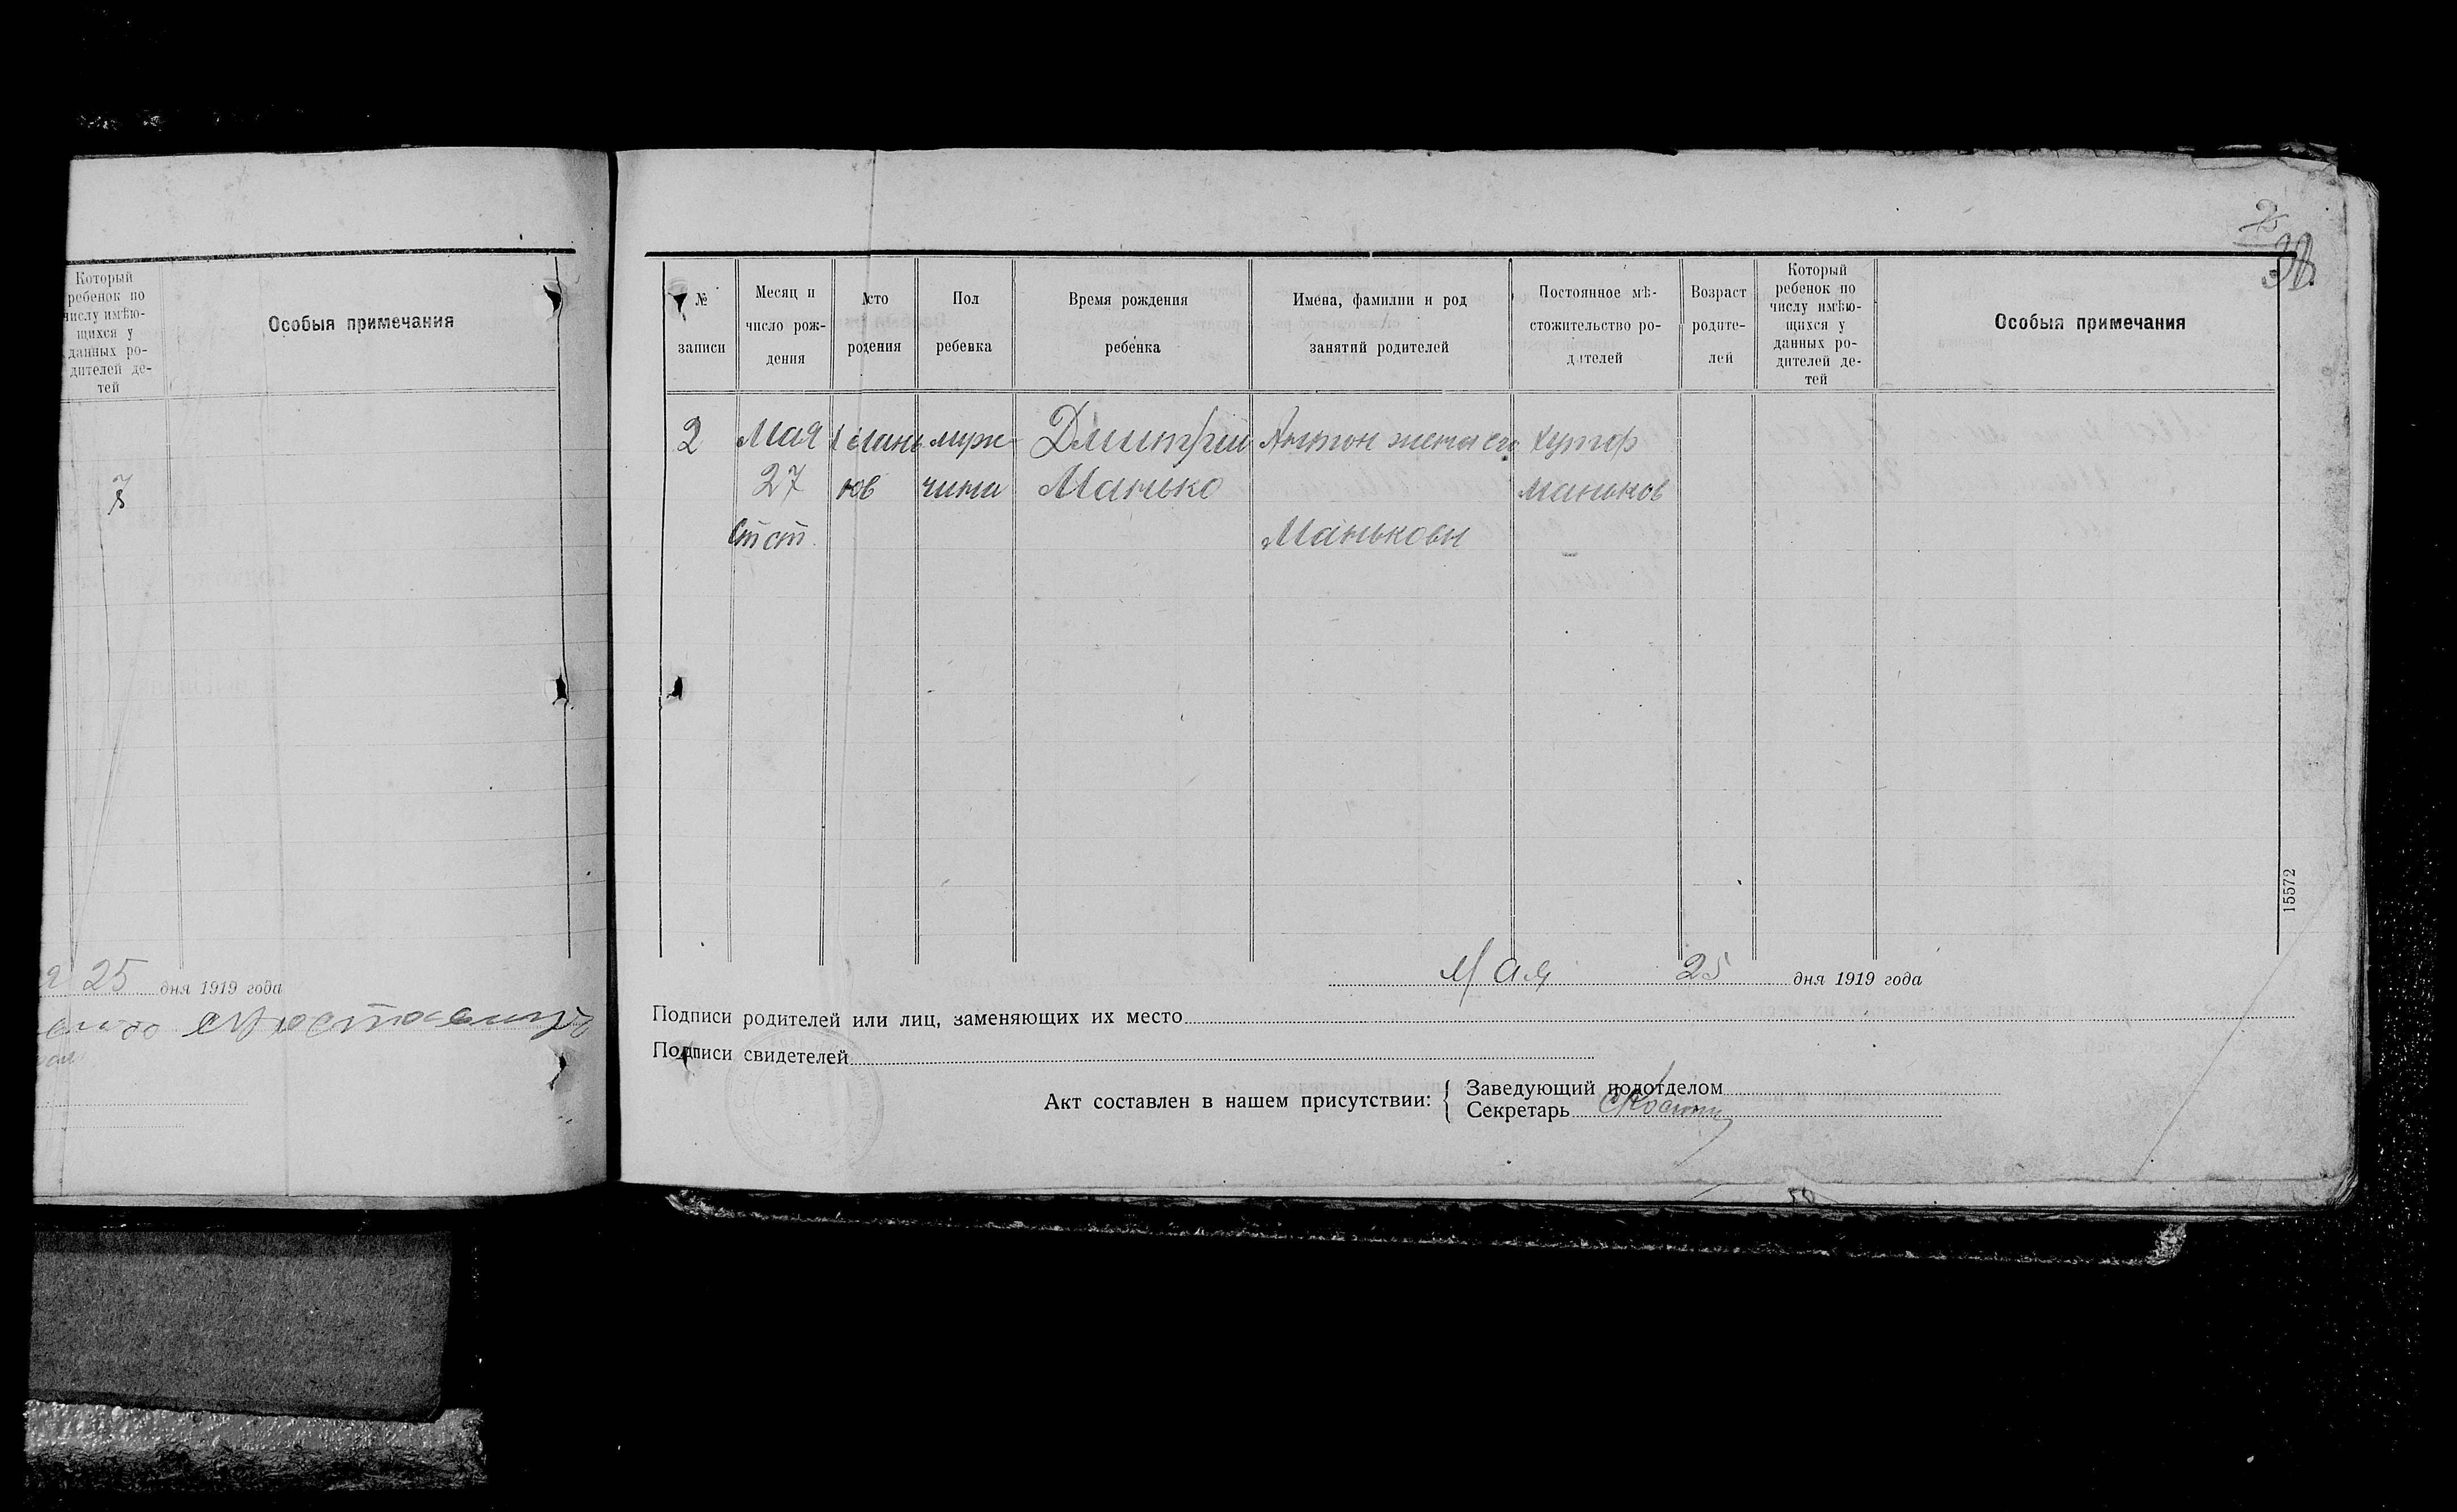 Который
ребенок по
числу имѣю-
щихся у
данных ро-
дителей де-
тей
Особыя примечания
25 дня 1919 года
2
38
№
записи
Месяц и
число рож-
дения
родения
Пол
ребенка
Время рождения
ребенка
Имена, фамилии и род
занятий родителей
Постоянное мѣ-
стожительство ро-
дителей
Возраст
родите-
лей
Который
ребенок по
числу имѣю-
щихся у
данных ро-
дителей де-
тей
Особыя примечания
2 Мая мань муж- Дмитрий Антон жена его хутор
27 ков чина Манько маньков
Ст ст. Маньковы
15572
Мая 25 дня 1919 года
Подписи родителей или лиц, заменяющих их место
Подписи свидетелей
Акт составлен в нашем присутствии:
Заведующий подотделом
Секретарь